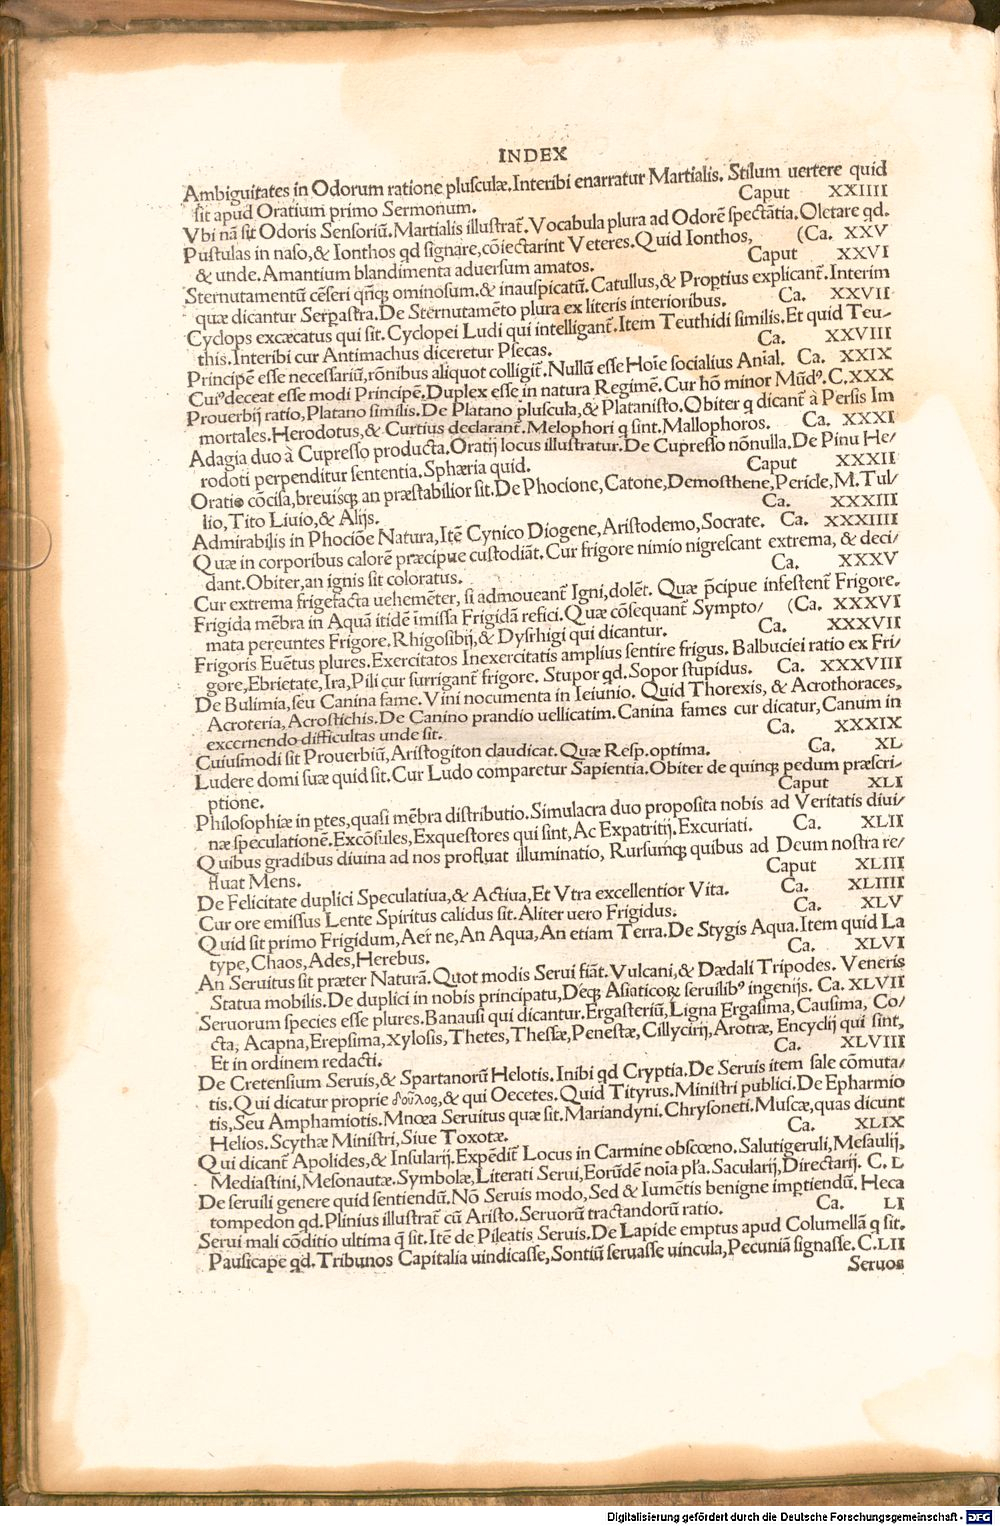 INDEX
Ambiguitates in Odorum ratione plusculæ. Interibi enarratur Martialis. Stilum uertere quid
sit apud Oratium primo Sermonum. Caput XXIIII
Vbi nã sit Odoris Sensoriũ. Martialis illustrat᷒. Vocabula plura ad Odorẽ spectãtia. Oletare qd.
Pustulas in naso, & Ionthos qd signare, cõiectarint Veteres. Quid Ionthos, (Ca. XXV
& unde. Amantium blandimenta aduersum amatos. Caput XXVI
Sternutamentũ cẽseri qñqꝫ ominosum. & inauspicatũ. Catullus, & Proptius explicant᷒. Interim
quæ dicantur Serpastra. De Sternutamẽto plura ex literis interioribus. Ca. XXVII
Cyclops excæcatus qui sit. Cyclopei Ludi qui intelligant᷒. Item Teuthidi similis. Et quid Teu-
this. Interibi cur Antimachus diceretur Psecas. Ca. XXVIII
Principẽ esse necessariũ, rõnibus aliquot colligit᷒. Nullũ esse Hoĩe socialius Anĩal. Ca. XXIX
Cuiꝰ deceat esse modi Principẽ. Duplex esse in natura Regimẽ. Cur hõ minor Mũdꝰ. C. XXX
Prouerbij ratio, Platano similis. De Platano pluscula, & Platanisto. Obiter q dicant᷒ à Persis Im
mortales. Herodotus, & Curtius declarant᷒. Melophori q sint. Mallophoros. Ca. XXXI
Adagia duo à Cupresso producta. Oratij locus illustratur. De Cupresso nõnulla. De Pinu He/
rodoti perpenditur sententia. Sphæria quid. Caput XXXII
Oratio cõcisa, breuisqꝫ an præstabilior sit. De Phocione, Catone, Demosthene, Pericle, M. Tul/
lio, Tito Liuio, & Alijs. Ca. XXXIII
Admirabilis in Phociõe Natura, Itẽ Cynico Diogene, Aristodemo, Socrate. Ca. XXXIIII
Quæ in corporibus calorẽ præcipue custodiãt. Cur frigore nimio nigrescant extrema, & deci/
dant. Obiter, an ignis sit coloratus. Ca. XXXV
Cur extrema frigefacta uehemẽter, si admoueant᷒ Igni, dolẽt. Quæ p̃cipue infestent᷒ Frigore.
Frigida mẽbra in Aquã itidẽ ĩmissa Frigidã refici. Quæ cõsequant᷒ Sympto/ (Ca. XXXVI
mata pereuntes Frigore. Rhigosibij, & Dysrhigi qui dicantur. Ca. XXXVII
Frigoris Euẽtus plures. Exercitatos Inexercitatis amplius sentire frigus. Balbuciei ratio ex Fri/
gore, Ebrietate, Ira, Pili cur surrigant᷒ frigore. Stupor qd. Sopor stupidus. Ca. XXXVIII
De Bulimia, seu Canina fame. Vini nocumenta in Ieiunio. Quid Thorexis, & Acrothoraces,
Acroteria, Acrostichis. De Canino prandio uellicatim. Canina fames cur dicatur, Canum in
excernendo difficultas unde sit. Ca. XXXIX
Cuiusmodi sit Prouerbiũ, Aristogiton claudicat. Quæ Resp. optima. Ca. XL
Ludere domi suæ quid sit. Cur Ludo comparetur Sapientia. Obiter de quinqꝫ pedum præscri-
ptione. Caput XLI
Philosophiæ in ptes, quasi mẽbra distributio. Simulacra duo proposita nobis ad Veritatis diui/
næ speculationẽ. Excõsules, Exquestores qui sint, Ac Expatritij. Excuriati. Ca. XLII
Quibus gradibus diuina ad nos profluat illuminatio, Rursumqꝫ quibus ad Deum nostra re/
fluat Mens. Caput XLIII
De Felicitate duplici Speculatiua, & Actiua, Et Vtra excellentior Vita. Ca. XLIIII
Cur ore emissus Lente Spiritus calidus sit. Aliter uero Frigidus. Ca. XLV
Quid sit primo Frigidum, Aer ne, An Aqua, An etiam Terra. De Stygis Aqua. Item quid La
type, Chaos, Ades, Herebus. Ca. XLVI
An Seruitus sit præter Naturã. Quot modis Serui fiãt. Vulcani, & Dædali Tripodes. Veneris
Statua mobilis. De duplici in nobis principatu, Deqꝫ Asiaticoꝝ seruilibꝰ ingenijs. Ca. XLVII
Seruorum species esse plures. Banausi qui dicantur. Ergasteriũ, Ligna Ergasima, Causima, Co/
cta, Acapna, Erepsima, Xylosis, Thetes, Thessæ, Penestæ, Cillycirij, Arotræ, Encyclij qui sint,
Et in ordinem redacti. Ca. XLVIII
De Cretensium Seruis, & Spartanorũ Helotis. Inibi qd Cryptia. De Seruis item sale cõmuta/
tis. Qui dicatur proprie δοῦλος, & qui Oecetes. Quid Tityrus. Ministri publici. De Epharmio
tis, Seu Amphamiotis. Mnœa Seruitus quæ sit. Mariandyni. Chrysoneti. Muscæ, quas dicunt
Helios. Scythæ Ministri, Siue Toxotæ. Ca. XLIX
Qui dicant᷒ Apolides, & Insularij. Expẽdit᷒ Locus in Carmine obscœno. Salutigeruli, Mesaulij,
Mediastini, Mesonautæ. Symbolæ, Literati Serui, Eorũdẽ noĩa pl'a. Sacularij, Directarij. C. L
De seruili genere quid sentiendũ. Nõ Seruis modo, Sed & Iumẽtis benigne imptiendũ. Heca
tompedon qd. Plinius illustrat᷒ cũ Aristo. Seruorũ tractandorũ ratio. Ca. LI
Serui mali cõditio ultima q̃ sit. Itẽ de Pileatis Seruis. De Lapide emptus apud Columellã q sit.
Pausicape qd. Tribunos Capitalia uindicasse, Sontiũ seruasse uincula, Pecuniã signasse. C. LII
Seruos
Digitalisierung gefördert durch die Deutsche Forschungsgemeinschaft - DFG